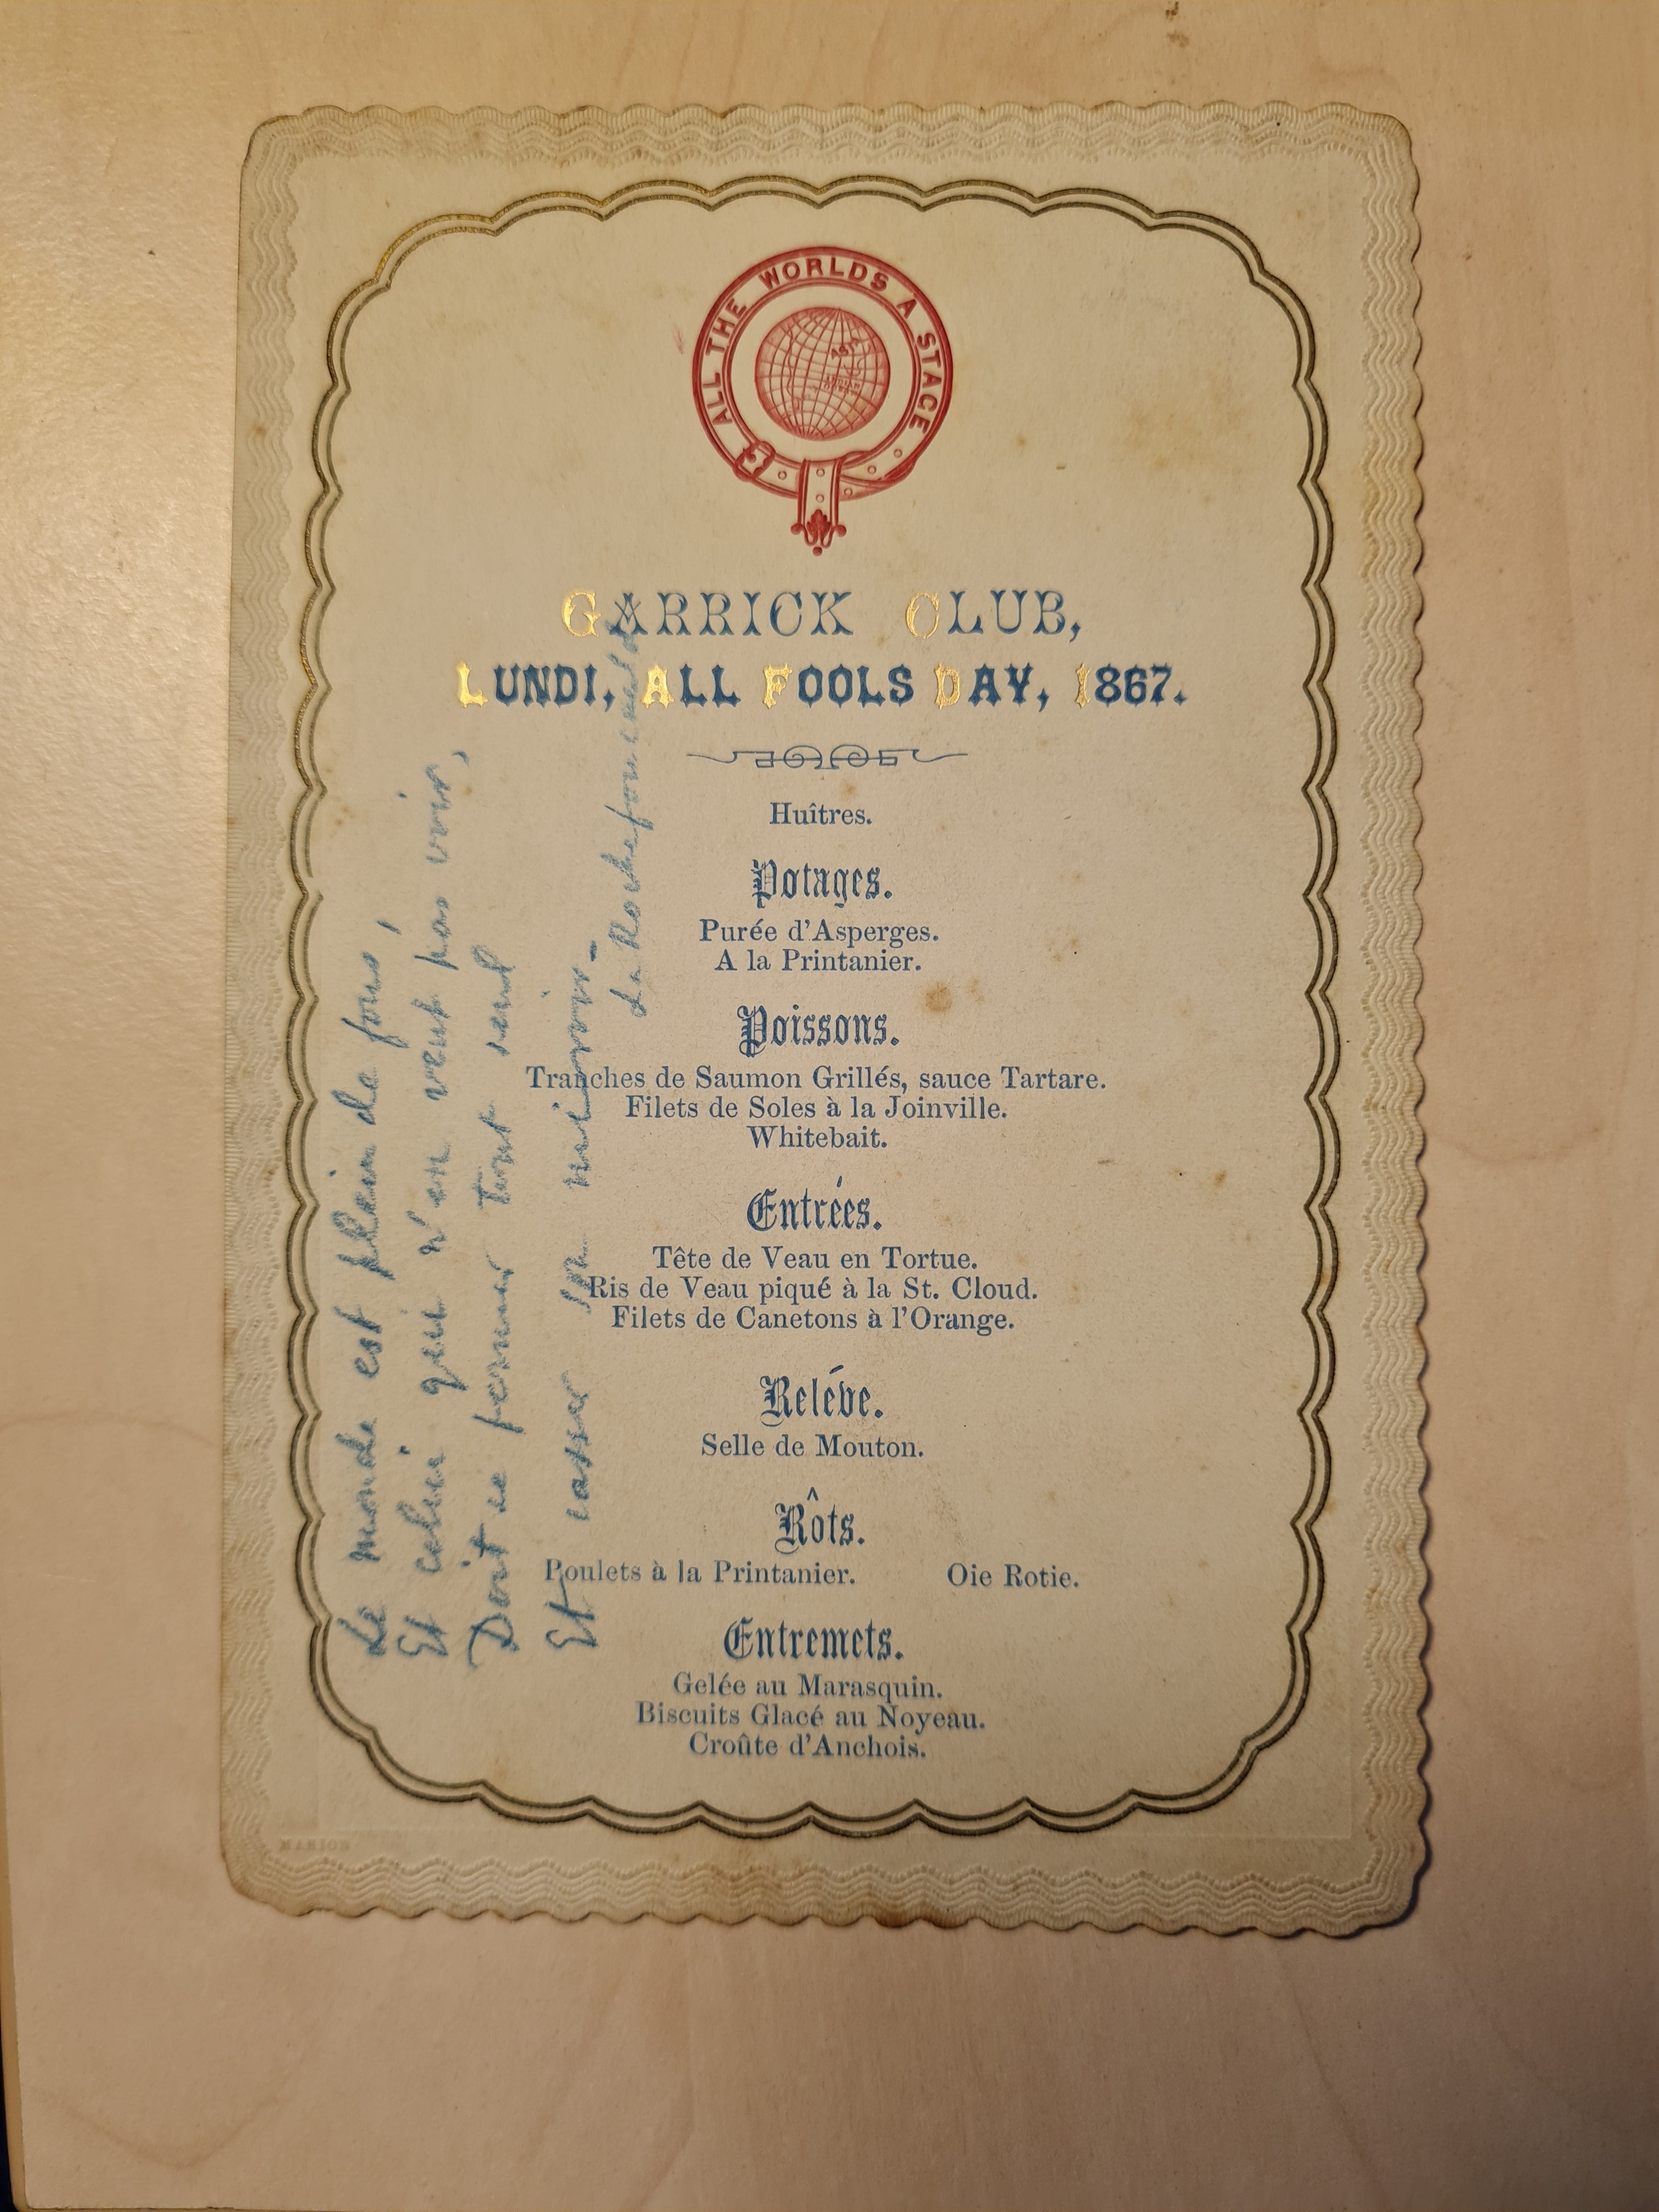 ALL THE WORLDS A STAGE
ASIA
GARRICK CLUB,
LUNDI, ALL FOOLS DAY, 1867.
Huîtres.
Potages.
Purée d'Asperges.
A la Printanier.
Poissons.
Tranches de Saumon Grillés, sauce Tartare.
Filets de Soles à la Joinville.
Whitebait.
Entrées.
Tête de Veau en Tortue.
Ris de Veau piqué à la St. Cloud.
Filets de Canetons à l'Orange.
Reléve.
Selle de Mouton.
Rôts.
Poulets à la Printanier. Oie Rotie.
Entremets.
Gelée au Marasquin.
Biscuits Glacé au Noyeau.
Croûte d'Anchois.
MARION
Le monde est plein de fous,
Et celui qui n'en veut pas voir,
Doit se fermer tout seul
Et casser son miroir.
La Rochefoucauld